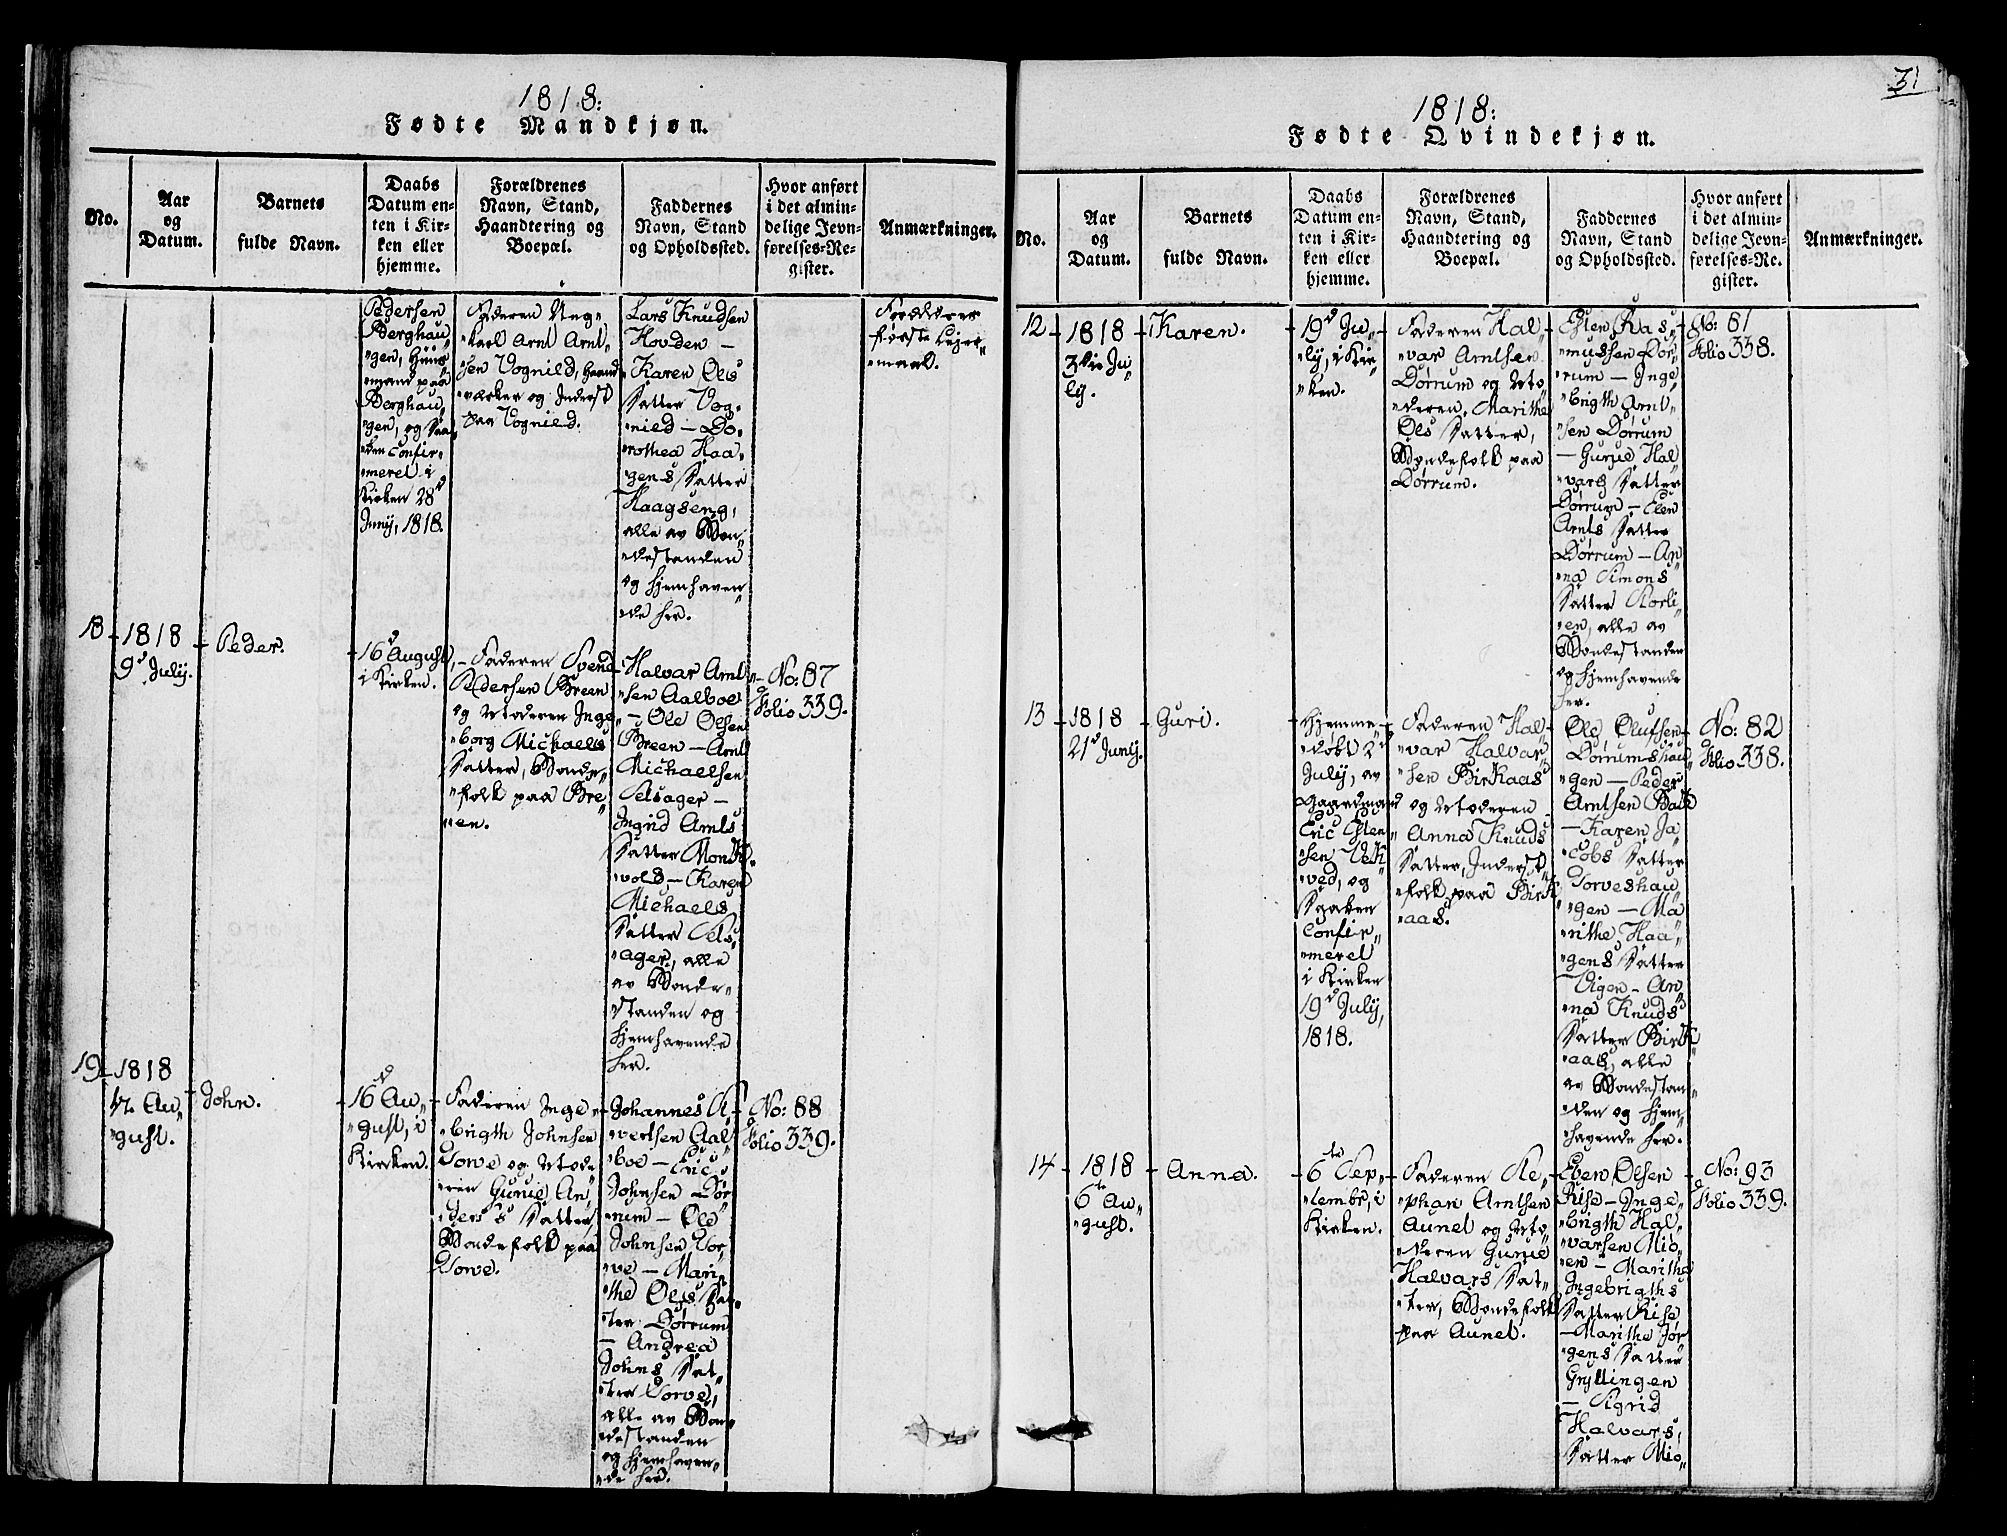 1818:
Fødte Mandkjøn.
No.
Aar
og
Datum.
Barnets
fulde Navn.
Daabs
Datum en-
ten i Kir-
ken eller
hjemme.
Forældrenes
Navn, Stand,
Haandtering og
Boepæl.
Faddernes
Navn, Stand
og Opholdssted.
Hvor anført
i det almin-
delige Jevn-
førelses-Re-
gister.
Anmærkninger.
Pedersen
Berghau„
„gen, Huus
„mand paa
Berghau„
„gen, og Saa„
„den Confir„
„meret i
Kirken 28d
Junij, 1818.
Faderen Ung„
„karl Arnt Arnt„
„sen Vognild, Haand
„værker og Inderst
paa Vognild.
Lars Knudsen
Hovden –
Karen Ols
Datter Vog„
„nild – Do„
„rothea Haa„
gens Datter
Haagseng,
alle av Bon„
„destanden
og hjemhaven„
„de her.
Forældrenes
første Leier„
„maal.
18 – 1818
9d Julij.
– Peder.
– 16d August,
i Kirken.
– Faderen Svend
Pedersen Breen
og Moderen Inge„
„borg Michaels
Datter, Bonde„
„folk paa Bre„
„en.
Halvar Arnt„
„sen Aalboe
– Ole Olsen
Breen – Arnt
Michaelsen
Selsager –
Ingrid Arnts
Datter Monk„
„vold – Karen
Michaels
Datter Sels„
„ager, alle
av Bonde„
standen og
hjemhavende
her.
– No: 87
Folio 339.
19 – 1818
Au„
„gust.
– John.
– 16d Au„
„gust, i
Kirken.
– Faderen Inge„
„brigth Johnsen
Torve og Mode„
„ren Gurie An„
„ders Datter
Bondefolk paa
Torve.
– Johannes
„vertsen Aal„
„boe – Eric
Johnsen Dør„
„rum – Ole
Johnsen Tor„
„ve – Mari„
„the Ols Dat„
„ter Dørrum
– Andrea
Johns Dat„
„ter Torve,
alle av Bon„
„destanden
og hjemhaven„
„de her.
– No: 88
Folio 339.
31
1818:
Fødte Qvindekjøn.
No.
Aar
og
Datum.
Barnets
fulde Navn.
Daabs
Datum en-
ten i Kir-
ken eller
hjemme.
Forældrenes
Navn, Stand,
Haandtering og
Boepæl.
Faddernes
Navn, Stand
og Opholdssted.
Hvor anført
i det almin-
delige Jevn-
førelses-Re-
gister.
Anmærkninger.
12 – 1818
3die Ju„
„lij.
– Karen.
– 19d Ju„
„lij, i Kir„
„ken.
– Faderen Hal„
„var Arntsen
Dørrum og Mo„
„deren, Marithe
Ols Datter,
Bondefolk paa
Dørrum.
– Esten Ras„
„mussen Dør„
„rum – Inge„
„brigth Arnt„
„sen Dørrum
– Gurie Hal„
„vars Datter
Dørrum – Elen
Arnts Datter
Dørrum – An„
„na Simons
Datter Storli„
„en, alle av
Bondestanden
og hjemhavende
her.
– No: 81
Folio 338.
13 – 1818
21d Junij.
– Guri.
– Hjemme„
„døbt 2d
Julij, av
Gaardmand
Eric Esten„
„sen Vek„
„ved, og
Saaken
Confir„
„meret
i Kirken
19d Julij,
1818.
– Faderen Hal„
„var Halvar„
„sen Birkaas
og Moderen
Anna Knuds
Datter, Inderst„
„folk paa Birk„
„aas.
– Ole Olufsen
Dørrumshau„
„gen – Peder
Arntsen Balk
– Karen Ja„
„cobs Datter
Torveshau„
„gen – Ma„
„rithe Haa„
„gens Datter
Vigen – An„
„na Knuds
Datter Birk„
„aas, alle
av Bondestan„
„den og hjem„
„havende her.
– No: 82
Folio 338.
14 – 1818
6te Au„
„gust.
– Anna.
– 6te Sep„
„tembr, i
Kirken.
– Faderen Ste„
„phan Arntsen
Aunet og Mo„
„deren Gurie
Halvars Dat„
„ter, Bondefolk
paa Aunet.
– Even Olsen
Rise – Inge„
„brigth Hal„
„varsen Mio„
„en – Marithe
Ingebrigths
Datter Rise
– Marithe Jør„
„gens Datter
Gryttingen
– Sigrid
Halvars
Datter Mio„
– No: 93
Folio 339.